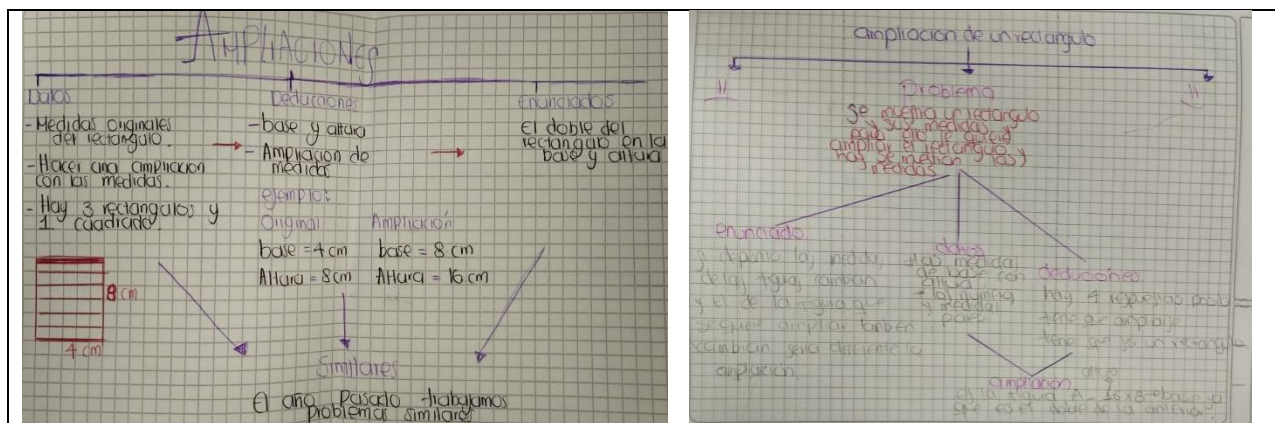 AMPLIACIONES
Datos
- Medidas originales
del rectangulo.
- Hacer una ampliacion
con las medidas.
- Hay 3 rectangulos y
1 cuadrado.
8 cm
4 cm
Deducciones
- base y altura
- Ampliacion de
medidas
ejemplo:
Original
base = 4 cm
Altura = 8 cm
Ampliación
base = 8 cm
Altura = 16 cm
Enunciados
El doble del
rectangulo en la
base y altura
Similares
El año pasado trabajamos
problemas similares
ampliacion de un rectangulo
Problema
se muestra un rectangulo
y sus medidas y
ampliar el rectangulo y
medidas
enunciado.
y el de la figura que
se quiere ampliar tambien
cambian seria diferente la
ampliación.
datos
de base con
altura
y medidas
pares
deducciones.
hay 4 repuestas
tiene que ampliarse
tiene que ser un rectangulo
ampliación
es la figura A 16x8 base ya
que es el doble de la anterior.